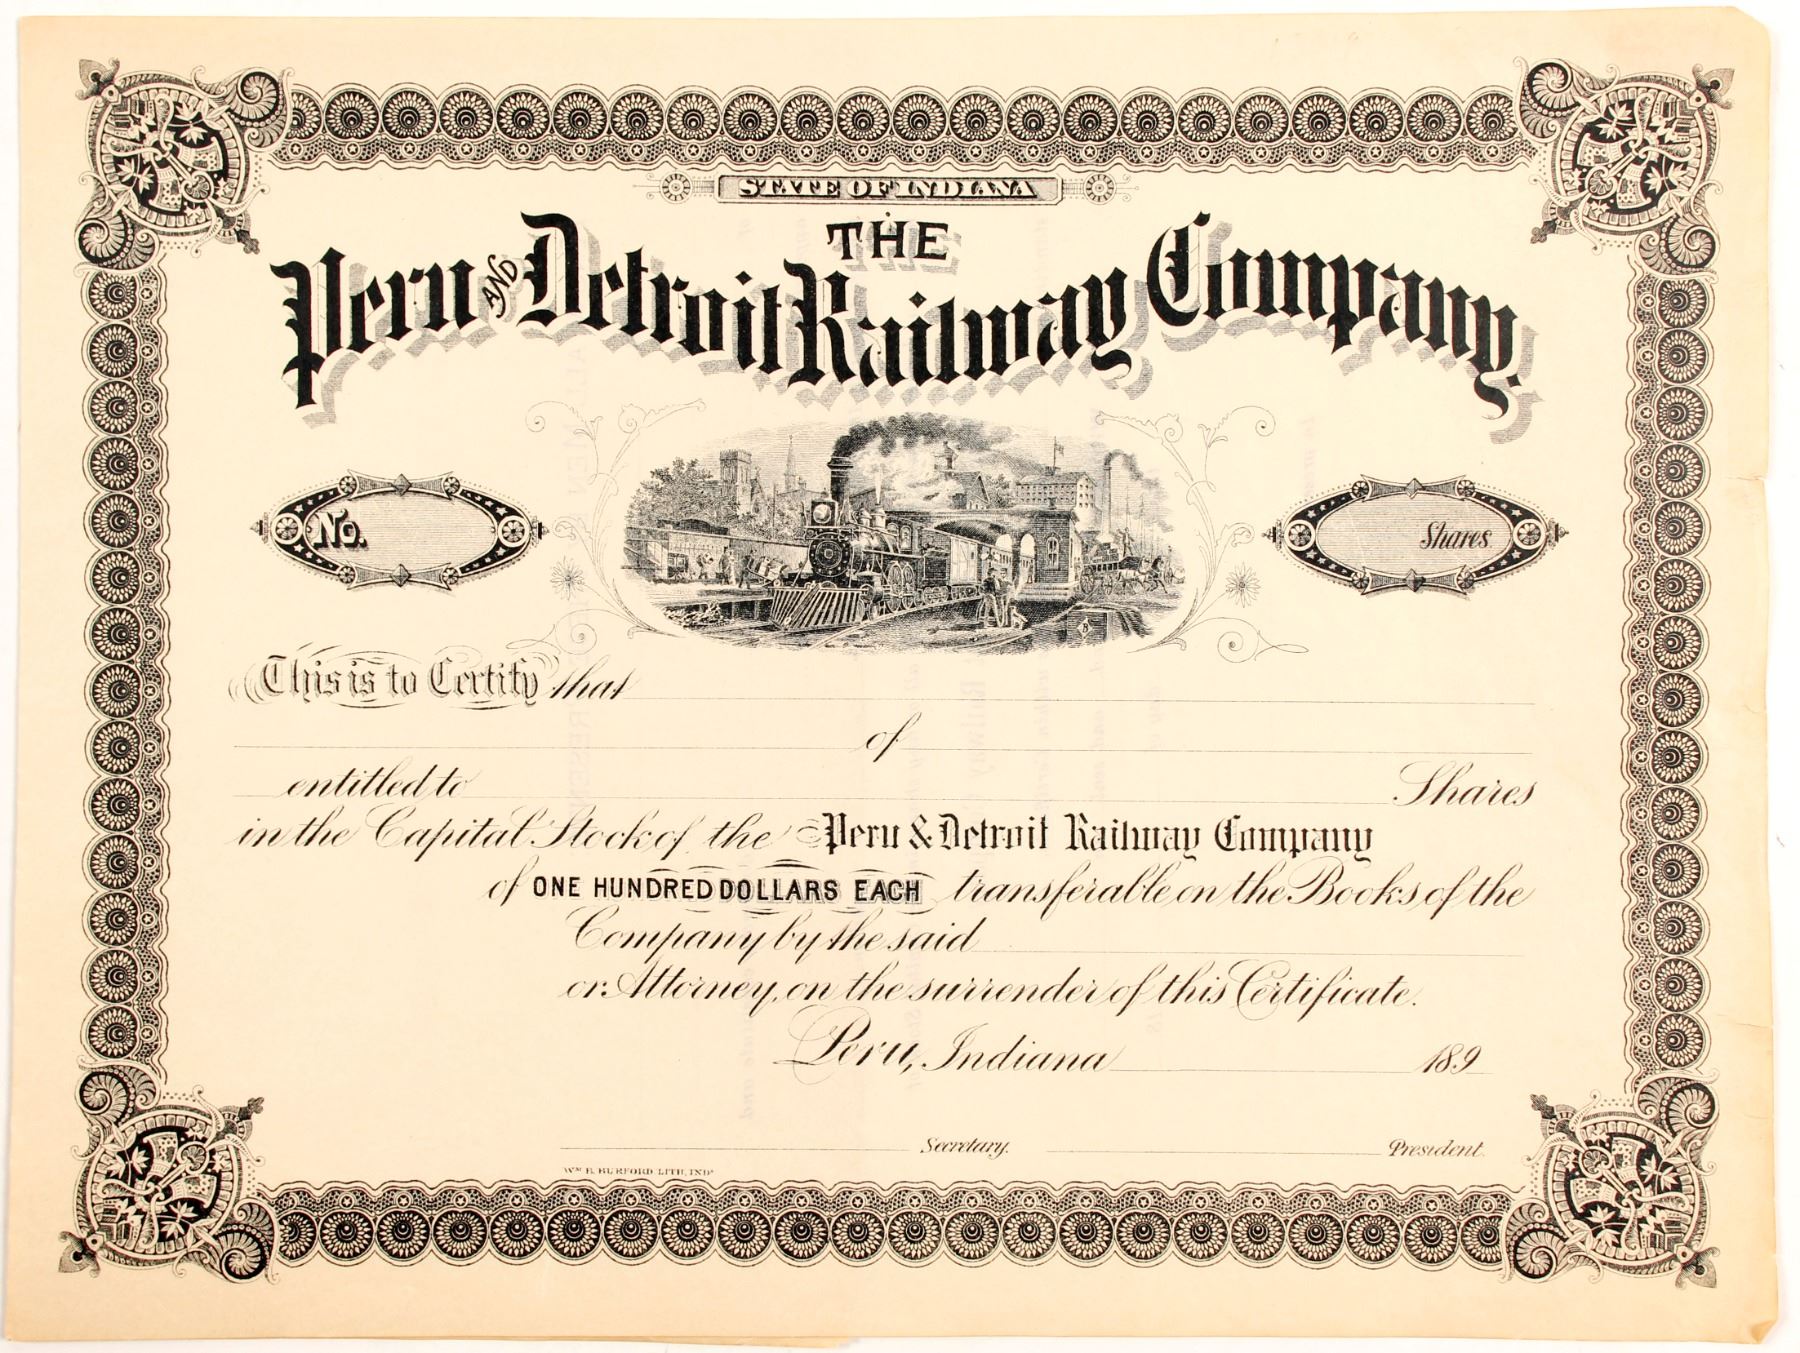 STATE OF INDIANA
THE
Peru AND Detroit Railway Company.
No.
Shares
This is to Certify that
of
entitled to Shares
in the Capital Stock of the Peru & Detroit Railway Company
of ONE HUNDRED DOLLARS EACH transferable on the Books of the
Company by the said
or Attorney, on the surrender of this Certificate.
Peru, Indiana 189
Secretary. President.
WM B. BURFORD LITH, IND'